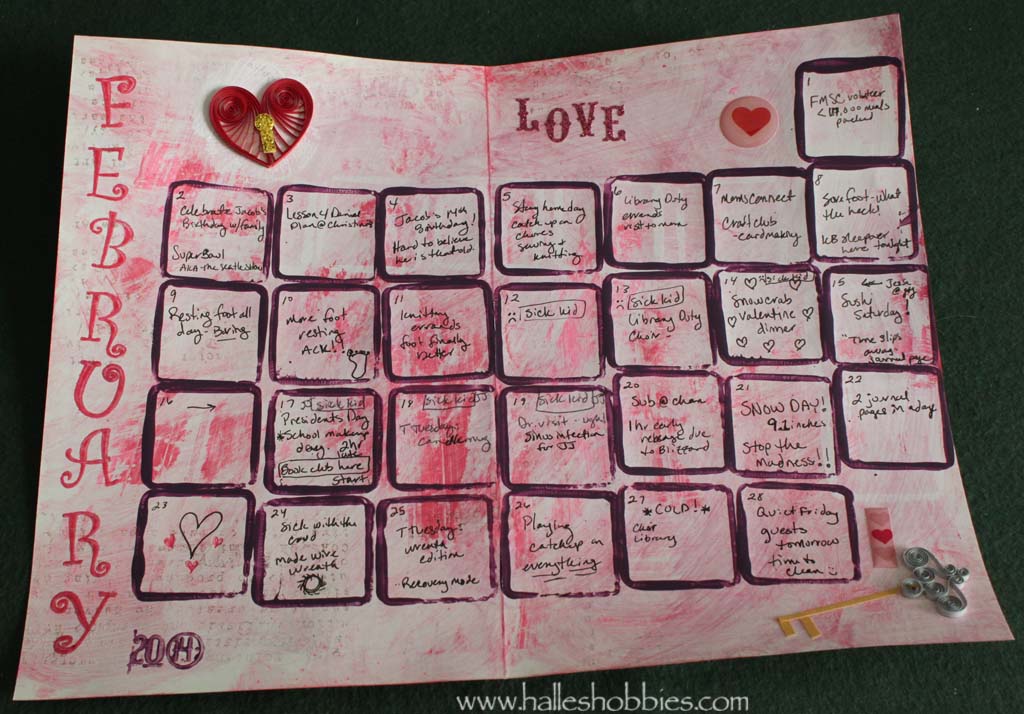 FEBRUARY
LOVE
1
FMSC volunteer
packed
2
Celebrate Jacob's
Birthday w/family
SuperBowl
AKA the Seattle
3
Lesson 4 Daniel
Plan @ Christina's
4
Jacob's 14th
Birthday!
Hard to believe
he is that old.
5
Stay home day
catch up on
chores
sewing +
knitting
6
Library Duty
errands
visit to mom
7
Moms Connect
Craft club
-cardmaking
8
Sore foot - what
the heck!
KB sleepover
here tonight
9
Resting foot all
day - Boring
10
More foot
resting
ACK!!
11
Knitting
errands
foot finally
better
12
Sick kid
13
Sick kid
Library Duty
Choir -
14
Sick kid
Snowcrab
Valentine
dinner
15
Sushi
Saturday!
Time slips
away
Journal page
16
17 JJ sick kid
Presidents Day
*School makeup
day - 2hr
late
Book club here
start
18 Sick kid JJ
TTuesday:
19. Sick kid JJ
Dr. visit -
Sinus infection
for JJ
20
Sub @ chan
1 hr early
release due
to Blizzard
21
SNOW DAY!
9.2 inches
Stop the
Madness!!
22
2 journal
pages in a day
23
24
Sick with the
crud
made wire
wreath
25
TTuesday:
wreath
edition
..Recovery mode
26
Playing
catchup on
everything
27
*COLD!*
Choir
Library
28
Quiet Friday
guests
tomorrow
time to
clean
2014
www.halleshobbies.com